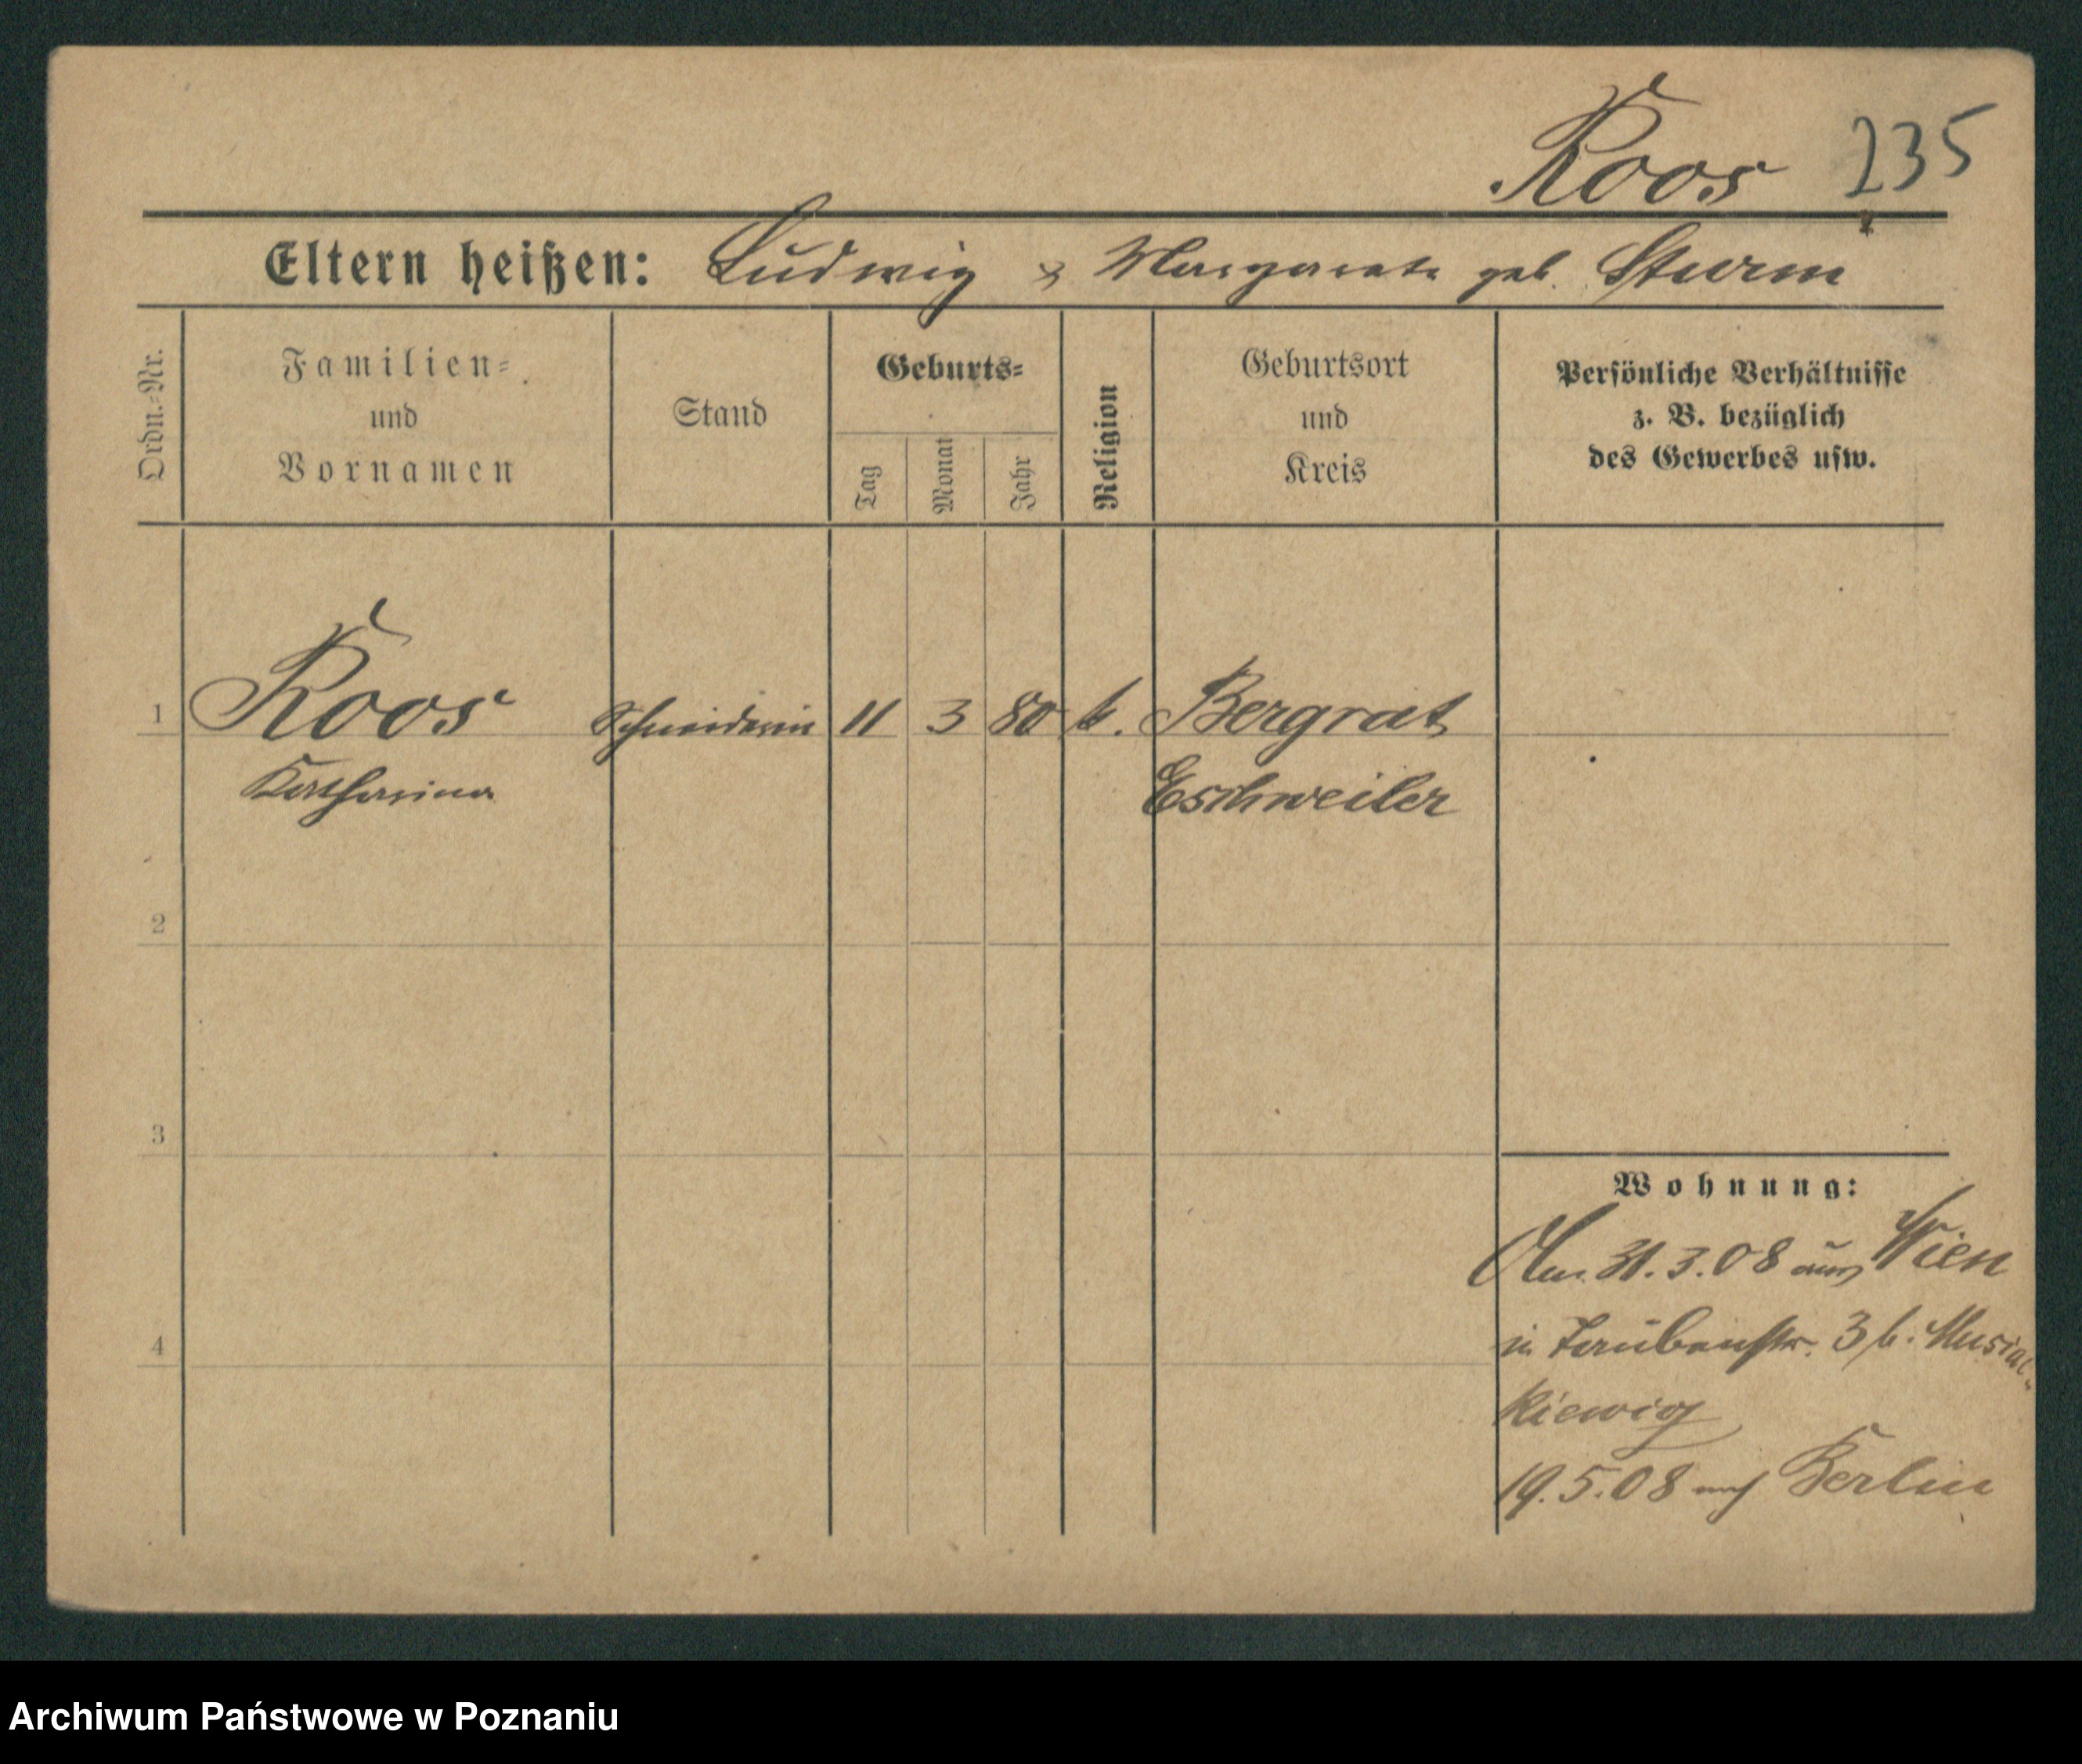 Roos 235
Eltern heißen: Ludwig & Margarete geb. Sturm
Ordn.-Nr.
Familien-
und
Vornamen
Stand
Geburts-
Tag
Monat
Jahr
Religion
Geburtsort
und
Kreis
Persönliche Verhältnisse
z. B. bezüglich
des Gewerbes usw.
1 Roos Schneiderin 11 3 80 k. Bergrat
Katharina Eschweiler
2
3
4
Wohnung:
Am 31.3.08 aus Wien
in 3 b. Musial-
kiewicz
19.5.08 nach Berlin
Archiwum Państwowe w Poznaniu